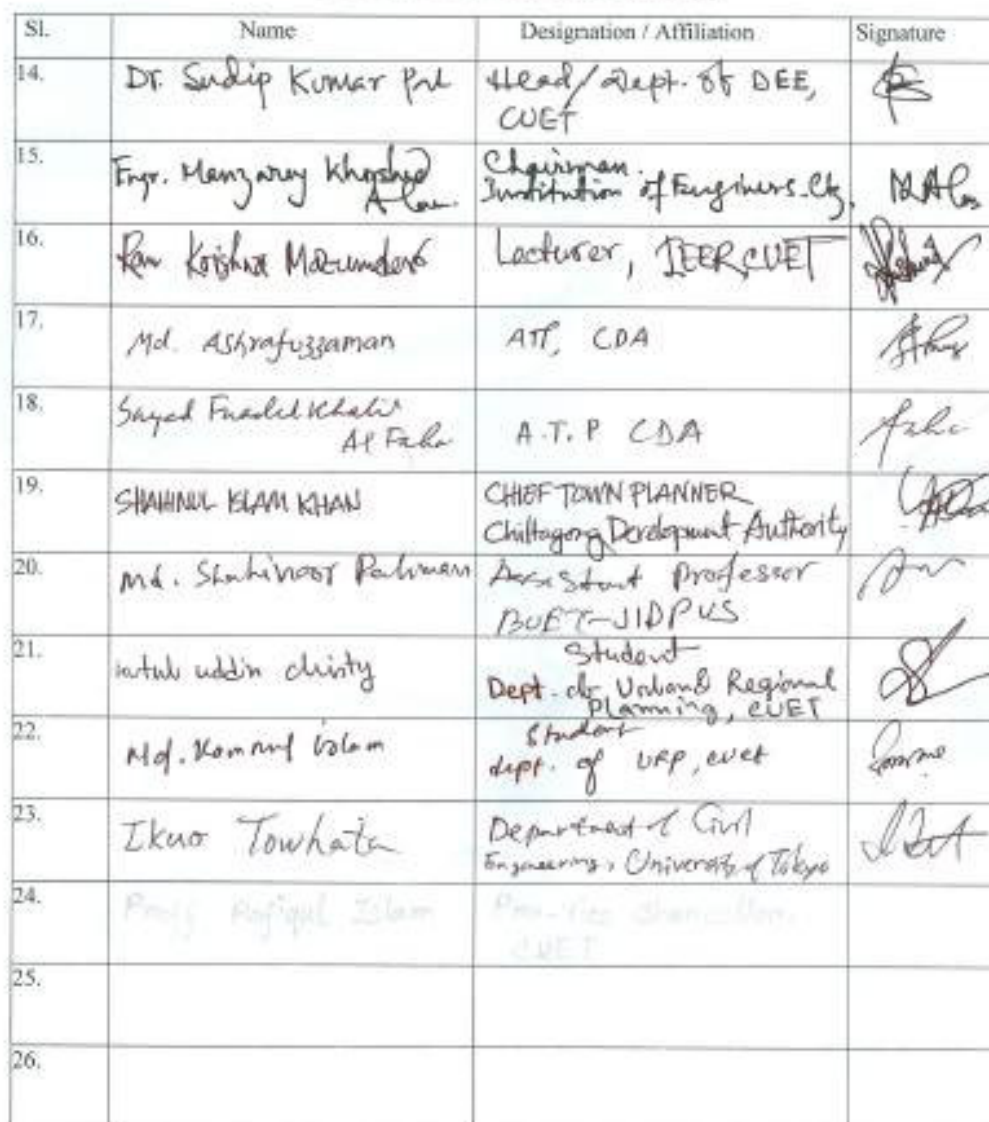 Sl. Name Designation / Affiliation Signature
14. Dr. Sudip Kumar Pal Head/Dept. of DEE,
CUET
15. Engr. Manzarey Khorshed Chairman.
Alam. Institution of Engineers. Ctg.
16. Ram Krishna Mazumder Lecturer, IEER, CUET
17. Md. Ashrafuzzaman ATP, CDA
18. Sayed Fuadul Khalil
Al Faha A.T.P CDA
19. SHAHINUL ISLAM KHAN CHIEF TOWN PLANNER
Chittagong Development Authority
20. Md. Shahinoor Rahman Assistant Professor
BUET-JIDPUS
21. uddin chisty Student
Dept. of Urban & Regional
Planning, CUET
22. Md. Kamrul islam Student
dept. of URP, cuet
23. Ikuo Towhata Department of Civil
Engineering, University of Tokyo
24. Prof. Rafiqul Islam Pro-Vice Chancellor,
CUET
25.
26.